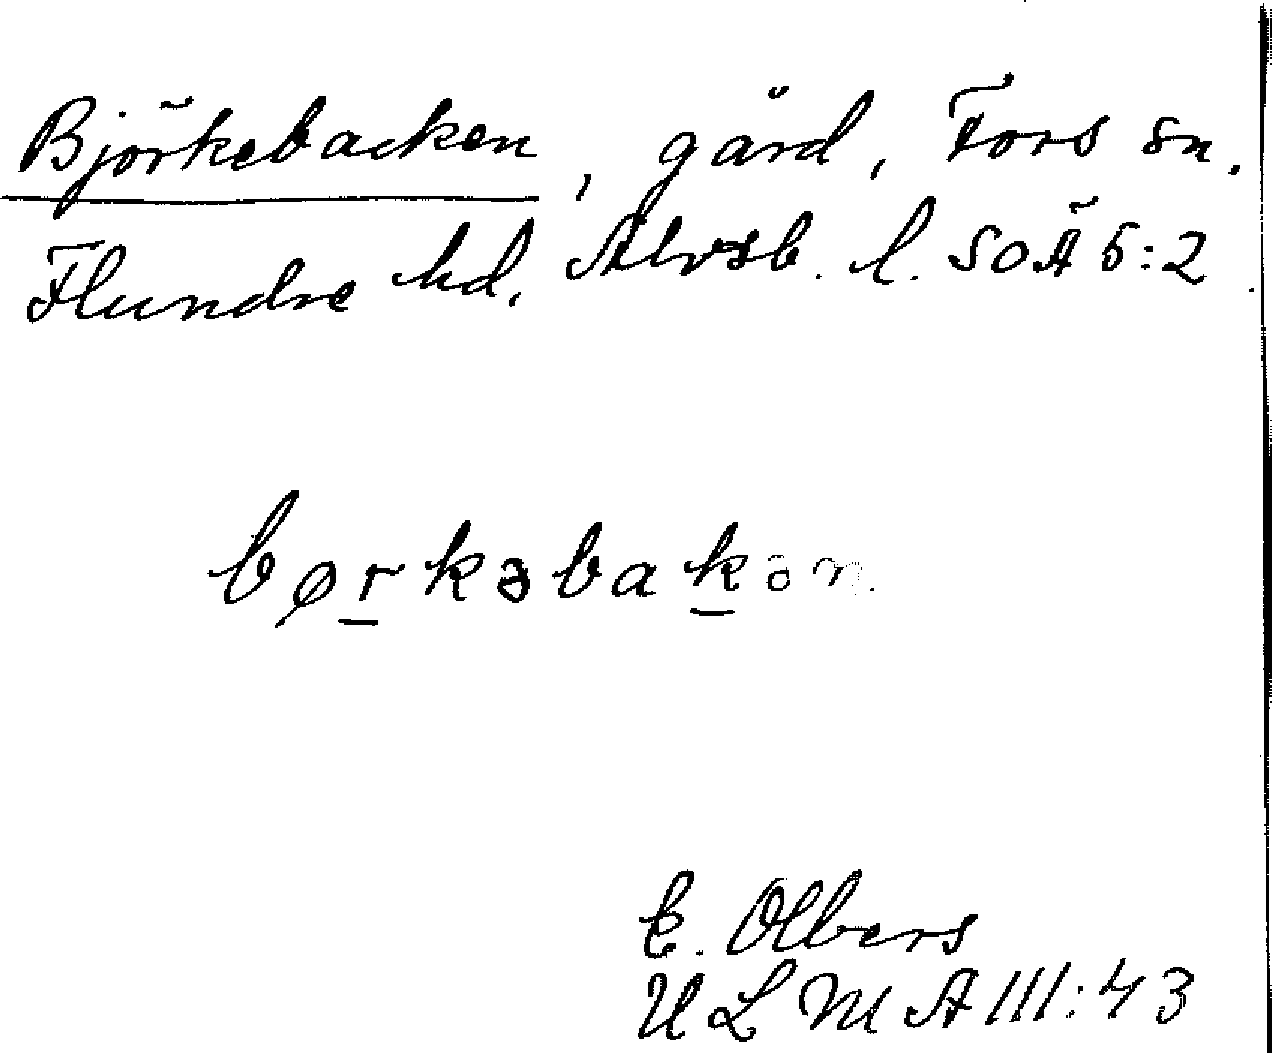 Björkebacken, gård, Fors sn.
Flundre hd, Älvsb. l. SOÄ 5:2.
børkəbakən.
E. Olbers
ULMA 111:43